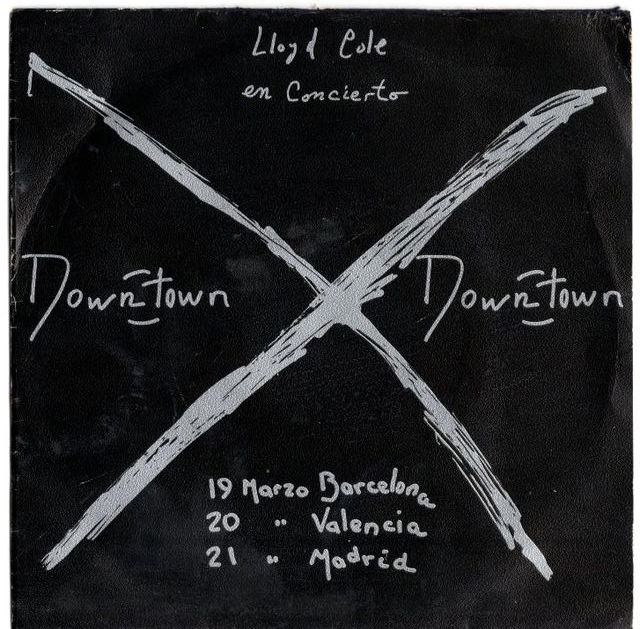 Lloyd Cole
en Concierto
Downtown Downtown
19 Marzo Barcelona
20 " Valencia
21 " Madrid